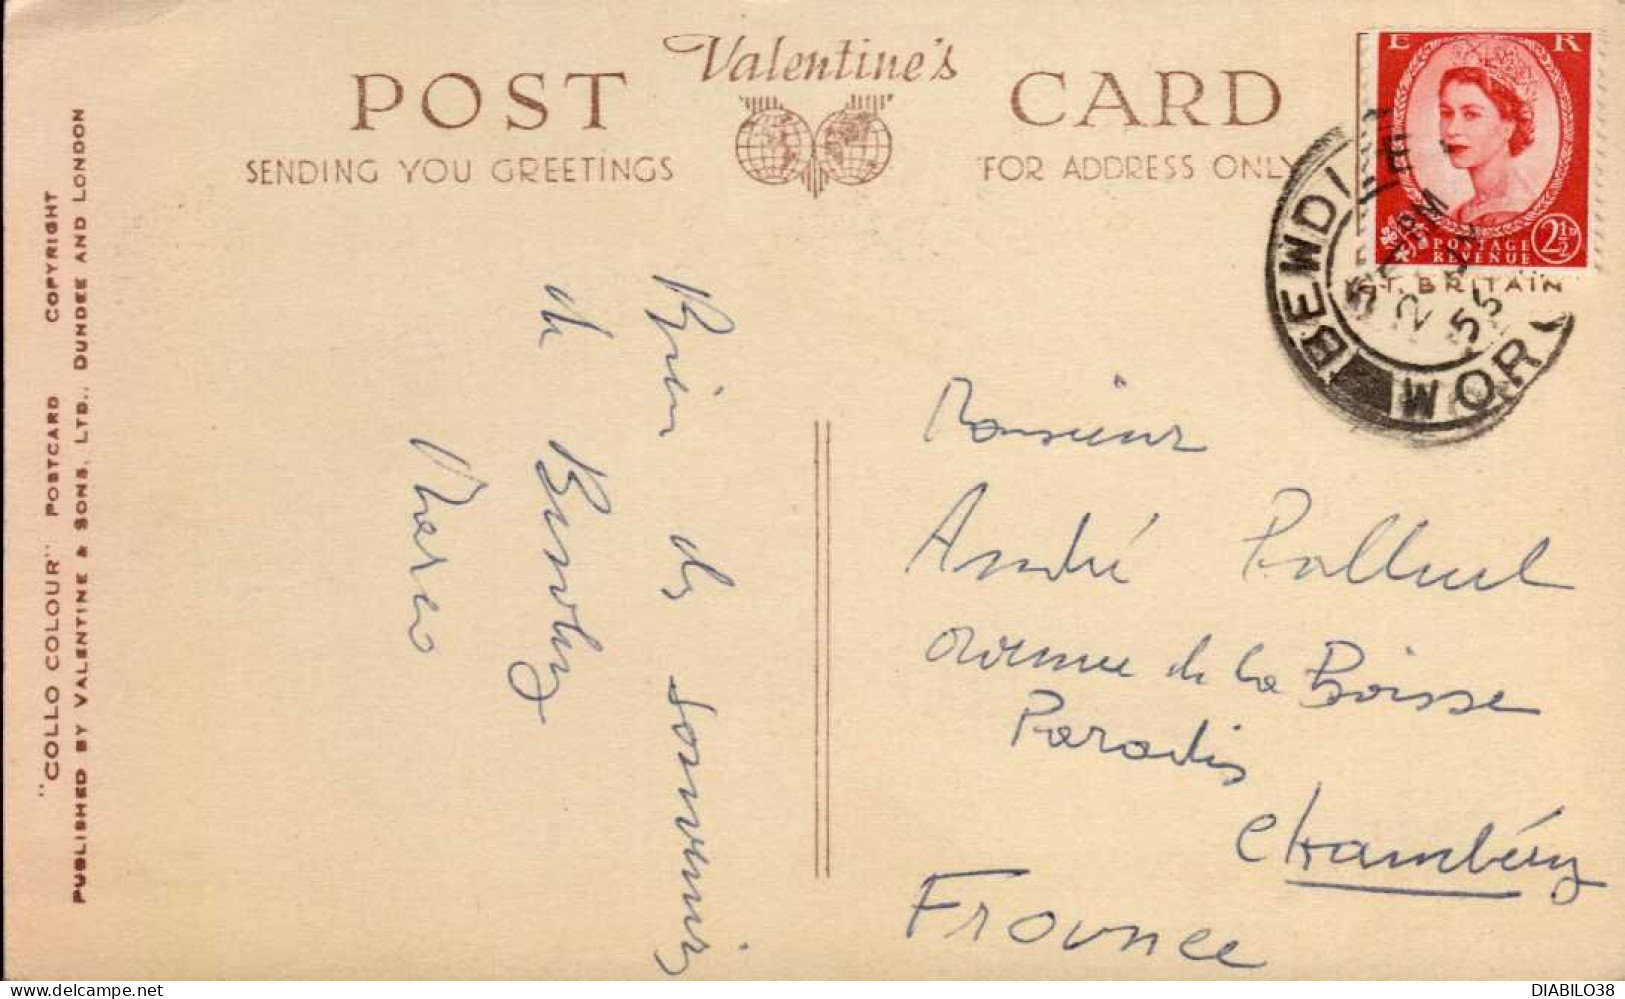 Valentine's
POST CARD
SENDING YOU GREETINGS
FOR ADDRESS ONLY
E R
POSTAGE
REVENUE
2½D
GT. BRITAIN
BEWDLEY
PM
2
55
WOR
"COLLO COLOUR" POSTCARD COPYRIGHT
PUBLISHED BY VALENTINE & SONS, LTD., DUNDEE AND LONDON
Bien des souvenirs
de
Marco
Monsieur
André
avenue de la Boisse
Paradis
Chambéry
France
DIABILO38